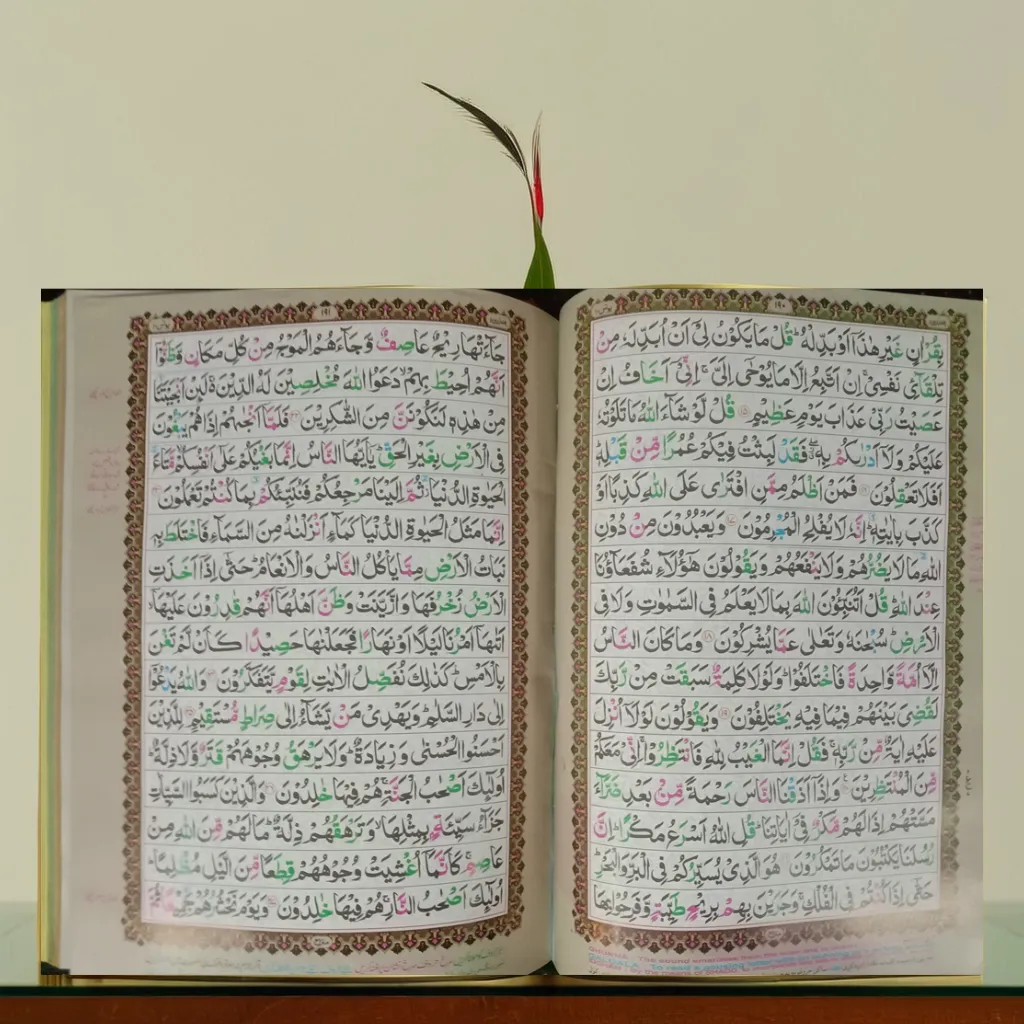 ۱۹۰
بِقُرْاٰنٍ غَيْرِ هٰذَاۤ اَوْ بَدِّلْهُ ؕ قُلْ مَا يَكُوْنُ لِيْۤ اَنْ اُبَدِّلَهٗ مِنْ
تِلْقَآئِ نَفْسِيْ ۚ اِنْ اَتَّبِعُ اِلَّا مَا يُوْحٰۤى اِلَيَّ ۚ اِنِّيْۤ اَخَافُ اِنْ
عَصَيْتُ رَبِّيْ عَذَابَ يَوْمٍ عَظِيْمٍ ۝۱۵ قُلْ لَّوْ شَآءَ اللّٰهُ مَا تَلَوْتُهٗ
عَلَيْكُمْ وَلَاۤ اَدْرٰىكُمْ بِهٖ ۖؗ فَقَدْ لَبِثْتُ فِيْكُمْ عُمُرًا مِّنْ قَبْلِهٖ ؕ
اَفَلَا تَعْقِلُوْنَ ۝۱۶ فَمَنْ اَظْلَمُ مِمَّنِ افْتَرٰى عَلَى اللّٰهِ كَذِبًا اَوْ
كَذَّبَ بِاٰيٰتِهٖ ؕ اِنَّهٗ لَا يُفْلِحُ الْمُجْرِمُوْنَ ۝۱۷ وَيَعْبُدُوْنَ مِنْ دُوْنِ
اللّٰهِ مَا لَا يَضُرُّهُمْ وَلَا يَنْفَعُهُمْ وَيَقُوْلُوْنَ هٰۤؤُلَآءِ شُفَعَآؤُنَا
عِنْدَ اللّٰهِ ؕ قُلْ اَتُنَبِّـُٔوْنَ اللّٰهَ بِمَا لَا يَعْلَمُ فِي السَّمٰوٰتِ وَلَا فِي
الْاَرْضِ ؕ سُبْحٰنَهٗ وَتَعٰلٰى عَمَّا يُشْرِكُوْنَ ۝۱۸ وَمَا كَانَ النَّاسُ
اِلَّاۤ اُمَّةً وَّاحِدَةً فَاخْتَلَفُوْا ؕ وَلَوْلَا كَلِمَةٌ سَبَقَتْ مِنْ رَّبِّكَ
لَقُضِيَ بَيْنَهُمْ فِيْمَا فِيْهِ يَخْتَلِفُوْنَ ۝۱۹ وَيَقُوْلُوْنَ لَوْلَاۤ اُنْزِلَ
عَلَيْهِ اٰيَةٌ مِّنْ رَّبِّهٖ ۚ فَقُلْ اِنَّمَا الْغَيْبُ لِلّٰهِ فَانْتَظِرُوْا ۚ اِنِّيْ مَعَكُمْ
مِّنَ الْمُنْتَظِرِيْنَ ۝۲۰ وَاِذَاۤ اَذَقْنَا النَّاسَ رَحْمَةً مِّنْۢ بَعْدِ ضَرَّآءَ
مَسَّتْهُمْ اِذَا لَهُمْ مَّكْرٌ فِيْۤ اٰيَاتِنَا ؕ قُلِ اللّٰهُ اَسْرَعُ مَكْرًا ؕ اِنَّ
رُسُلَنَا يَكْتُبُوْنَ مَا تَمْكُرُوْنَ هُوَ الَّذِيْ يُسَيِّرُكُمْ فِي الْبَرِّ وَالْبَحْرِ ؕ
حَتّٰۤى اِذَا كُنْتُمْ فِي الْفُلْكِ ۚ وَجَرَيْنَ بِهِمْ بِرِيْحٍ طَيِّبَةٍ وَّفَرِحُوْا بِهَا
۱۹۱
جَآءَتْهَا رِيْحٌ عَاصِفٌ وَّجَآءَهُمُ الْمَوْجُ مِنْ كُلِّ مَكَانٍ وَّظَنُّوْۤا
اَنَّهُمْ اُحِيْطَ بِهِمْ ۙ دَعَوُا اللّٰهَ مُخْلِصِيْنَ لَهُ الدِّيْنَ ۚ لَئِنْ اَنْجَيْتَنَا
مِنْ هٰذِهٖ لَنَكُوْنَنَّ مِنَ الشّٰكِرِيْنَ ۝۲۲ فَلَمَّاۤ اَنْجٰىهُمْ اِذَا هُمْ يَبْغُوْنَ
فِي الْاَرْضِ بِغَيْرِ الْحَقِّ ؕ يٰۤاَيُّهَا النَّاسُ اِنَّمَا بَغْيُكُمْ عَلٰۤى اَنْفُسِكُمْ ۙ مَّتَاعَ
الْحَيٰوةِ الدُّنْيَا ؗ ثُمَّ اِلَيْنَا مَرْجِعُكُمْ فَنُنَبِّئُكُمْ بِمَا كُنْتُمْ تَعْمَلُوْنَ ۝۲۳
اِنَّمَا مَثَلُ الْحَيٰوةِ الدُّنْيَا كَمَآءٍ اَنْزَلْنٰهُ مِنَ السَّمَآءِ فَاخْتَلَطَ بِهٖ
نَبَاتُ الْاَرْضِ مِمَّا يَاْكُلُ النَّاسُ وَالْاَنْعَامُ ؕ حَتّٰۤى اِذَاۤ اَخَذَتِ
الْاَرْضُ زُخْرُفَهَا وَازَّيَّنَتْ وَظَنَّ اَهْلُهَاۤ اَنَّهُمْ قٰدِرُوْنَ عَلَيْهَاۤ ۙ
اَتٰىهَاۤ اَمْرُنَا لَيْلًا اَوْ نَهَارًا فَجَعَلْنٰهَا حَصِيْدًا كَاَنْ لَّمْ تَغْنَ
بِالْاَمْسِ ؕ كَذٰلِكَ نُفَصِّلُ الْاٰيٰتِ لِقَوْمٍ يَّتَفَكَّرُوْنَ ۝۲۴ وَاللّٰهُ يَدْعُوْۤا
اِلٰى دَارِ السَّلٰمِ ؕ وَيَهْدِيْ مَنْ يَّشَآءُ اِلٰى صِرَاطٍ مُّسْتَقِيْمٍ ۝۲۵ لِلَّذِيْنَ
اَحْسَنُوا الْحُسْنٰى وَزِيَادَةٌ ؕ وَلَا يَرْهَقُ وُجُوْهَهُمْ قَتَرٌ وَّلَا ذِلَّةٌ ؕ
اُولٰٓئِكَ اَصْحٰبُ الْجَنَّةِ ۚ هُمْ فِيْهَا خٰلِدُوْنَ ۝۲۶ وَالَّذِيْنَ كَسَبُوا السَّيِّاٰتِ
جَزَآءُ سَيِّئَةٍۭ بِمِثْلِهَا ۙ وَتَرْهَقُهُمْ ذِلَّةٌ ؕ مَا لَهُمْ مِّنَ اللّٰهِ مِنْ
عَاصِمٍ ۚ كَاَنَّمَاۤ اُغْشِيَتْ وُجُوْهُهُمْ قِطَعًا مِّنَ الَّيْلِ مُظْلِمًا ؕ
اُولٰٓئِكَ اَصْحٰبُ النَّارِ ۚ هُمْ فِيْهَا خٰلِدُوْنَ ۝۲۷ وَيَوْمَ نَحْشُرُهُمْ جَمِيْعًا